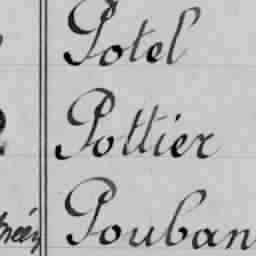 Potel
Pottier
Pouban